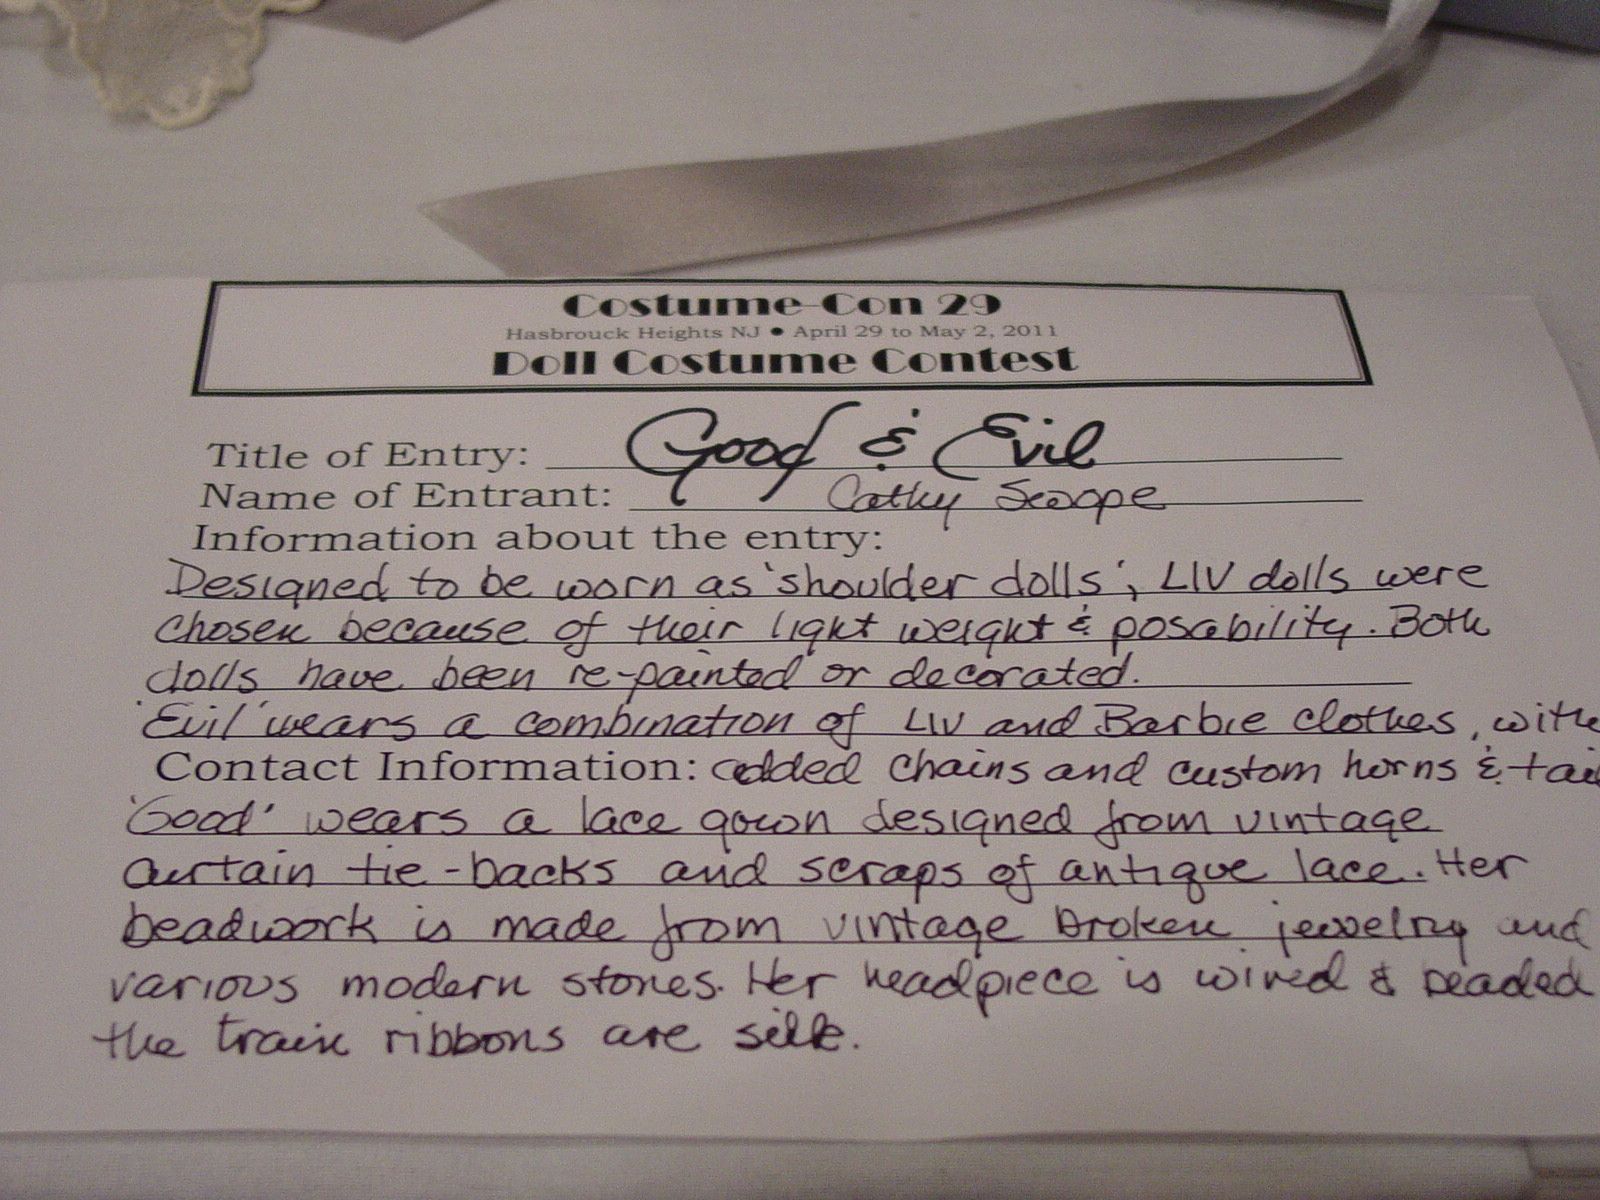 Costume-Con 29
Hasbrouck Heights NJ • April 29 to May 2, 2011
Doll Costume Contest
Title of Entry: Good & Evil
Name of Entrant: Cathy Scoope
Information about the entry:
Designed to be worn as 'shoulder dolls', LIV dolls were
chosen because of their light weight & posability. Both
dolls have been re-painted or decorated.
'Evil' wears a combination of LIV and Barbie clothes, with
Contact Information: added chains and custom horns & tail
'Good' wears a lace gown designed from vintage
curtain tie-backs and scraps of antique lace. Her
beadwork is made from vintage broken jewelry and
various modern stones. Her headpiece is wired & beaded
the train ribbons are silk.